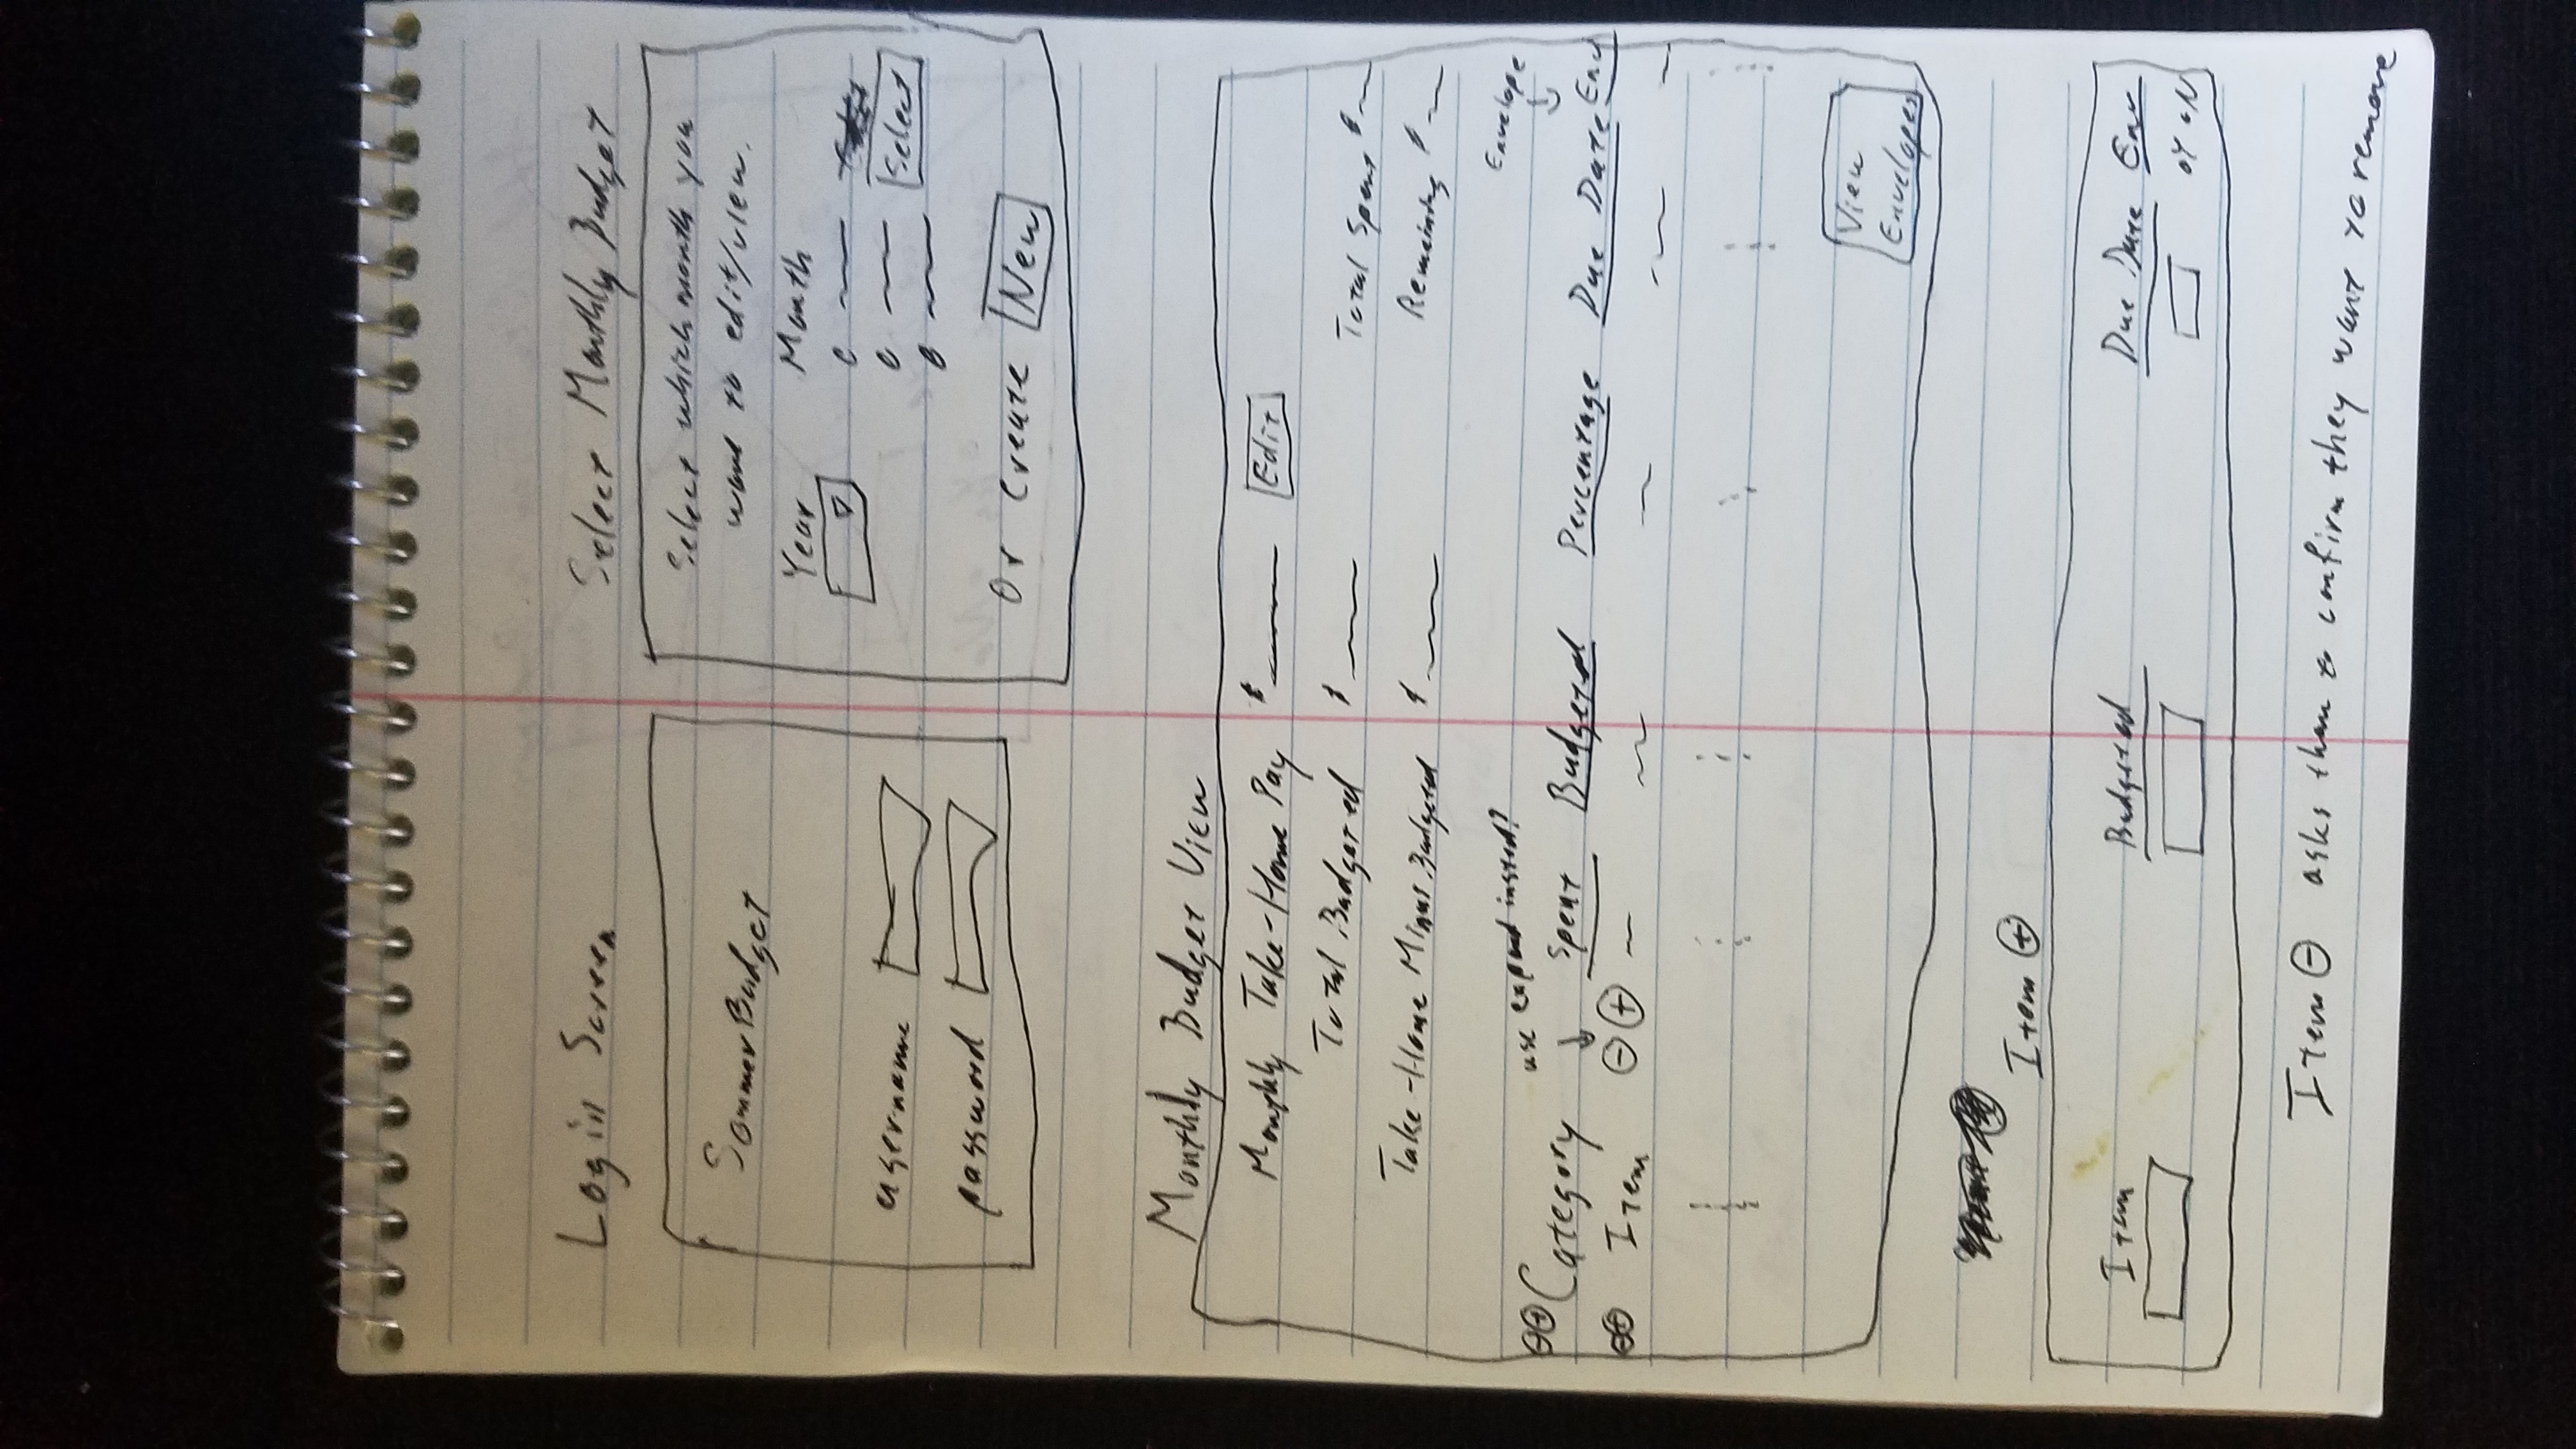 Login Screen
SommerBudget
username
password
Select Monthly Budget
Select which month you
want to edit/view.
Year Month
Select
Or create New
Monthly Budget View
Monthly Take-Home Pay $ Edit
Total Budgeted $ Total Spent $
Take-Home Minus Budgeted $ Remaining $
use expand insted? Envelope
⊖⊕ Category Spent Budgeted Percentage Due Date Env
⊖⊕ Item ⊖ ⊕
View
Envelopes
Item ⊕
Item Budgeted Due Date Env
oY oN
Item ⊖ asks them to confirm they want to remove